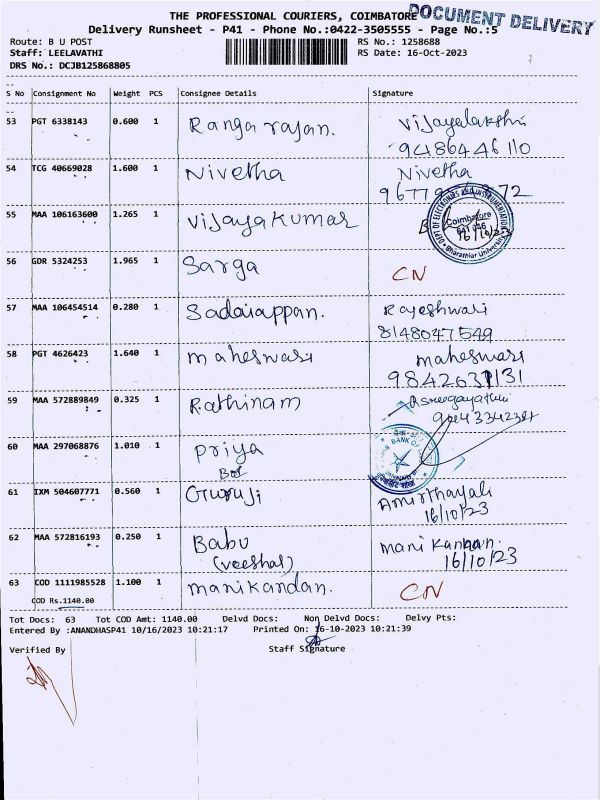 DOCUMENT DELIVERY
THE PROFESSIONAL COURIERS, COIMBATORE
Delivery Runsheet - P41 - Phone No.:0422-3505555 - Page No.:5
Route: B U POST RS No.: 1258688
Staff: LEELAVATHI RS Date: 16-Oct-2023
DRS No.: DCJB125868805
S No Consignment No Weight PCS Consignee Details Signature
53 PGT 6338143 0.600 1 Rangarajan. Vijayalakshi
9486446110
54 TCG 40669028 1.600 1 Nivetha Nivetha
55 MAA 106163600 1.265 1 Vijayakumar
Coimbatore
16/10/23
Bharathiar University
56 GDR 5324253 1.965 1 Sarga CN
57 MAA 106454514 0.280 1 Sadaiappan. Rajeshwari
8148047549
58 PGT 4626423 1.640 1 maheswari maheswari
59 MAA 572889849 0.325 1 Rathinam
60 MAA 297068876 1.010 1 priya
BOI
BANK OF
61 IXM 504607771 0.560 1 Guruji Amirthayali
16/10/23
62 MAA 572816193 0.250 1 Babu Manikannan.
(veeshal) 16/10/23
63 COD 1111985528 1.100 1 manikandan. CN
COD Rs.1140.00
Tot Docs: 63 Tot COD Amt: 1140.00 Delvd Docs: Non Delvd Docs: Delvy Pts:
Entered By :ANANDHASP41 10/16/2023 10:21:17 Printed On: 16-10-2023 10:21:39
Verified By Staff Signature